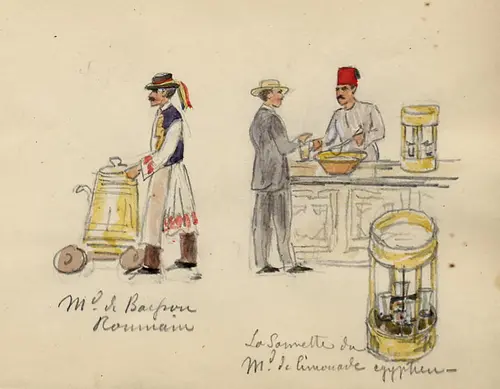 Md de Boisson
Roumain
La Sonnette du
Md de limonade egyptien —